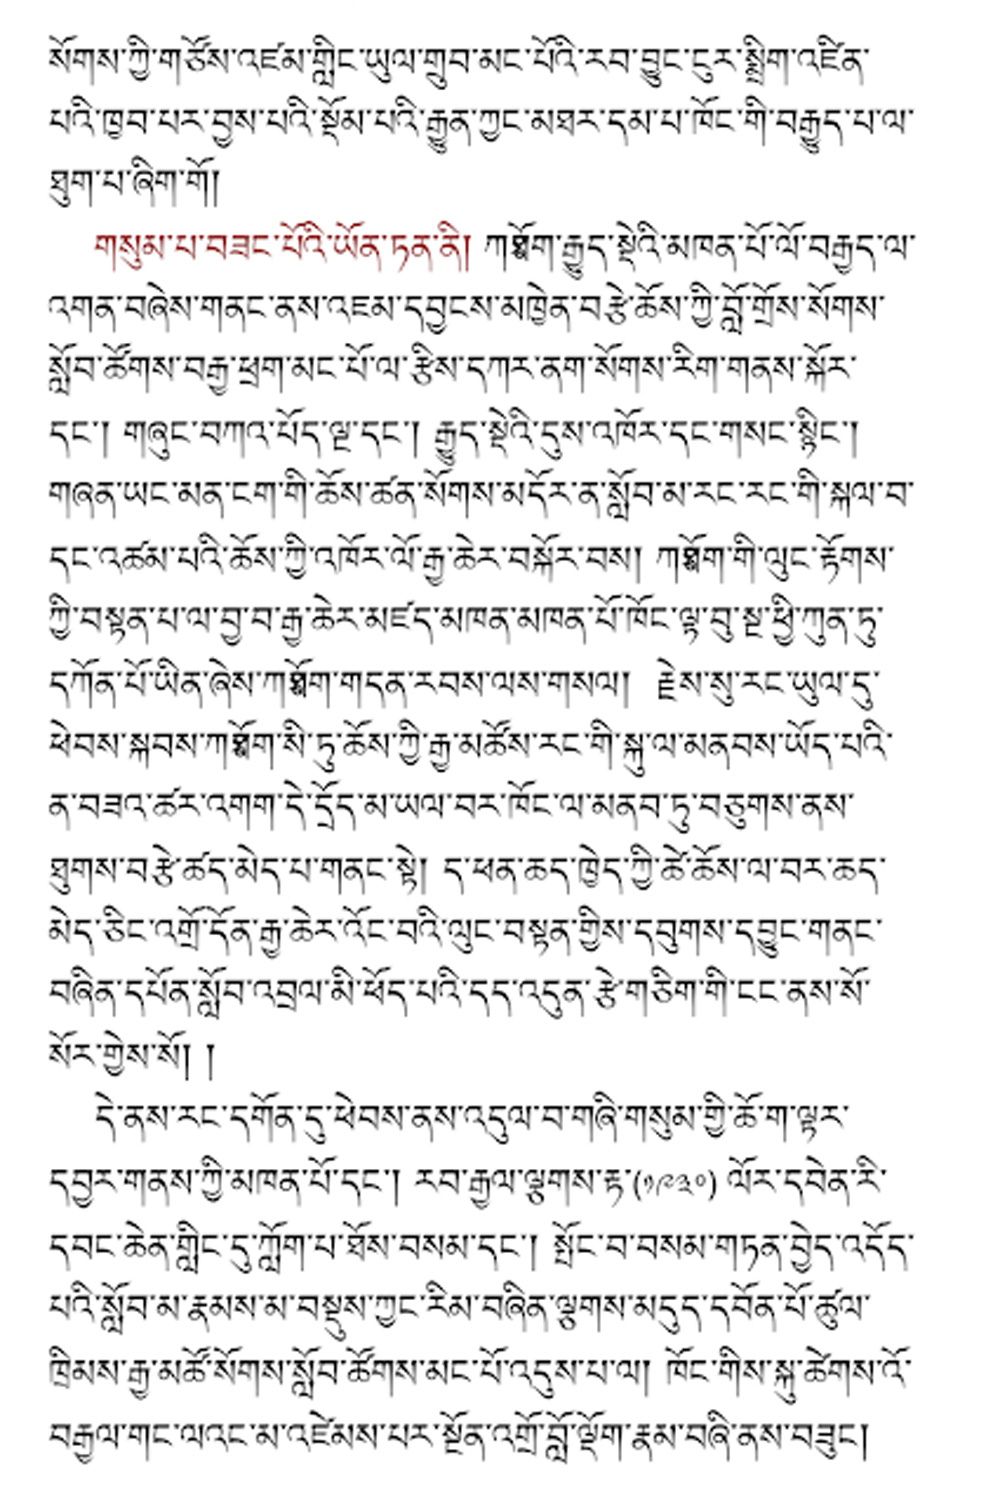 སོགས་ཀྱི་གཙོས་འཛམ་གླིང་ཡུལ་གྲུབ་མང་པོའི་རབ་བྱུང་ངུར་སྨྲིག་འཛིན་
པའི་ཁྱབ་པར་བྱས་པའི་སྡོམ་པའི་རྒྱུན་ཀྱང་མཐར་དམ་པ་ཁོང་གི་བརྒྱུད་པ་ལ་
ཐུག་པ་ཞིག་གོ།
གསུམ་པ་བཟང་པོའི་ཡོན་ཏན་ནི། ཀཿཐོག་རྒྱུད་སྡེའི་མཁན་པོ་ལོ་བརྒྱད་ལ་
འགན་བཞེས་གནང་ནས་འཇམ་དབྱངས་མཁྱེན་བརྩེ་ཆོས་ཀྱི་བློ་གྲོས་སོགས་
སློབ་ཚོགས་བརྒྱ་ཕྲག་མང་པོ་ལ་རྩིས་དཀར་ནག་སོགས་རིག་གནས་སྐོར་
དང་། གཞུང་བཀའ་པོད་ལྔ་དང་། རྒྱུད་སྡེའི་དུས་འཁོར་དང་གསང་སྙིང་།
གཞན་ཡང་མན་ངག་གི་ཆོས་ཚན་སོགས་མདོར་ན་སློབ་མ་རང་རང་གི་སྐལ་བ་
དང་འཚམ་པའི་ཆོས་ཀྱི་འཁོར་ལོ་རྒྱ་ཆེར་བསྐོར་བས། ཀཿཐོག་གི་ལུང་རྟོགས་
ཀྱི་བསྟན་པ་ལ་བྱ་བ་རྒྱ་ཆེར་མཛད་མཁན་མཁན་པོ་ཁོང་ལྟ་བུ་སྔ་ཕྱི་ཀུན་ཏུ་
དཀོན་པོ་ཡིན་ཞེས་ཀཿཐོག་གདན་རབས་ལས་གསལ། རྗེས་སུ་རང་ཡུལ་དུ་
ཕེབས་སྐབས་ཀཿཐོག་སི་ཏུ་ཆོས་ཀྱི་རྒྱ་མཚོས་རང་གི་སྐུ་ལ་མནབས་ཡོད་པའི་
ན་བཟའ་ཚར་འགག་དེ་དྲོད་མ་ཡལ་བར་ཁོང་ལ་མནབ་ཏུ་བཅུགས་ནས་
ཐུགས་བརྩེ་ཚད་མེད་པ་གནང་སྟེ། ད་ཕན་ཆད་ཁྱེད་ཀྱི་ཚེ་ཆོས་ལ་བར་ཆད་
མེད་ཅིང་འགྲོ་དོན་རྒྱ་ཆེར་འོང་བའི་ལུང་བསྟན་གྱིས་དབུགས་དབྱུང་གནང་
བཞིན་དཔོན་སློབ་འབྲལ་མི་ཕོད་པའི་དད་འདུན་རྩེ་གཅིག་གི་ངང་ནས་སོ་
སོར་གྱེས་སོ། །
དེ་ནས་རང་དགོན་དུ་ཕེབས་ནས་འདུལ་བ་གཞི་གསུམ་གྱི་ཆོ་ག་ལྟར་
དབྱར་གནས་ཀྱི་མཁན་པོ་དང་། རབ་རྒྱལ་ལྕགས་རྟ་(༡༩༣༠) ལོར་དབེན་རི་
དབང་ཆེན་གླིང་དུ་ཀློག་པ་ཐོས་བསམ་དང་། སྤོང་བ་བསམ་གཏན་བྱེད་འདོད་
པའི་སློབ་མ་རྣམས་མ་བསྡུས་ཀྱང་རིམ་བཞིན་ལྕགས་མདུད་དབོན་པོ་ཚུལ་
ཁྲིམས་རྒྱ་མཚོ་སོགས་སློབ་ཚོགས་མང་པོ་འདུས་པ་ལ། ཁོང་གིས་སྐུ་ཚེགས་འོ་
བརྒྱལ་གང་ལའང་མ་འཛེམས་པར་སྔོན་འགྲོ་བློ་ལྡོག་རྣམ་བཞི་ནས་བཟུང།